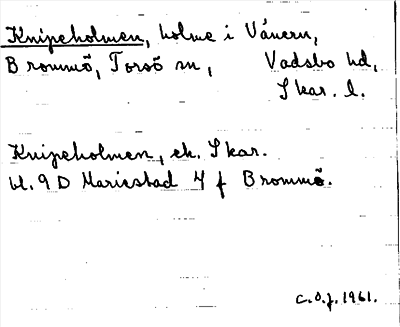 Knipeholmen, holme i Vänern,
Brommö, Torsö sn, Vadsbo hd,
Skar. l.
Knipeholmen, ek. Skar.
bl. 9 D Mariestad 4 f Brommö.
C.O.f. 1961.